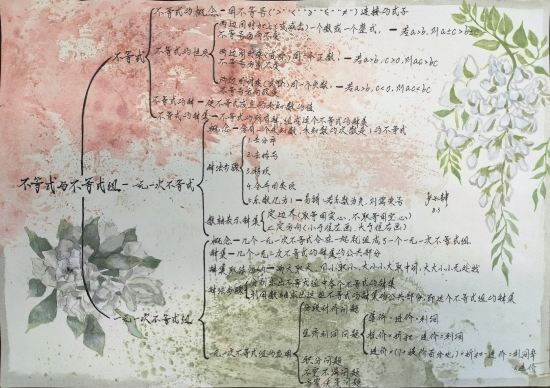 不等式的概念一用不等号(">""<""≥""≤""≠")连接的式子
不等式
不等式的性质
两边同时加上(或减去)一个数或一个整式,一若a>b,则a±c>b±c
不等号方向不变
两边同时乘(或除)同一个正数,一若a>b,c>0,则ac>bc
不等号方向不变
两边同时乘(或除)同一个负数,一若a>b,c<0,则ac<bc
不等式的解一使不等式成立的未知数的值
不等式的解集一不等式的所有解,组成这个不等式的解集
不等式与不等式组一一元一次不等式
概念一含有一个未知数,未知数的次数是1的不等式
解法步骤
1.去分母
2.去括号
3.移项
4.合并同类项
5.系数化为1一易错:若系数为负,则需变号
数轴表示解集
①定边界(取等用实心,不取等用空心)
②定方向(小于往左画,大于往右画)
一元一次不等式组
概念一几个一元一次不等式合在一起就组成了一个一元一次不等式组
解集一几个一元一次不等式的公共部分
解集取法
同大取大,同小取小,大小小大取中间,大大小小无处找
解法步骤
分别求出不等式组中各个不等式的解集
利用数轴求出这些不等式的解集的公共部分,即这个不等式组的解集
一元一次不等式组的应用
分段计价问题
生活利润问题
售价-进价=利润
标价×折扣-进价=利润
积分问题